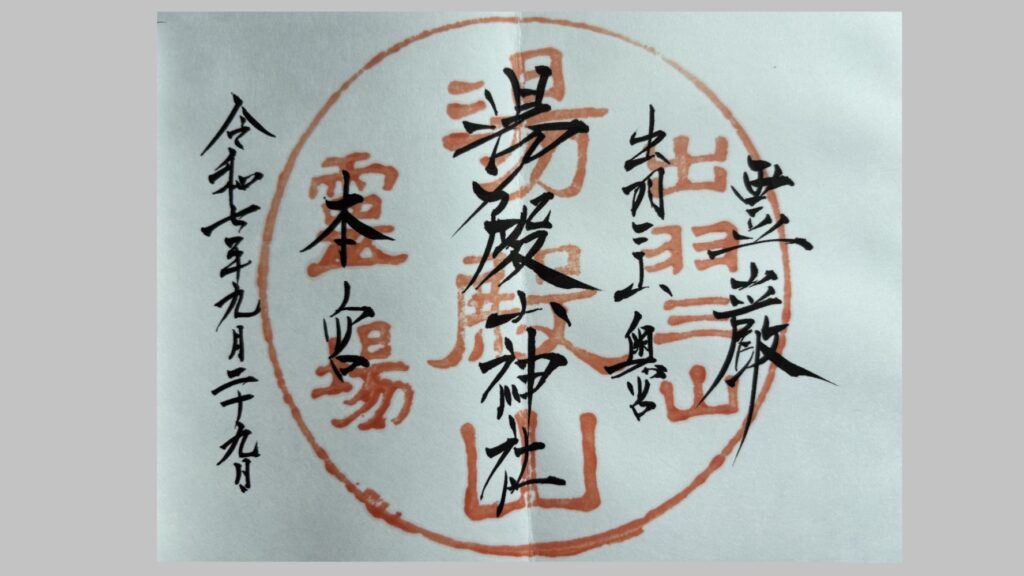 霊巌
出羽三山 奥宮
湯殿山神社
本宮
令和七年九月二十九日
出羽三山
湯殿山
靈場